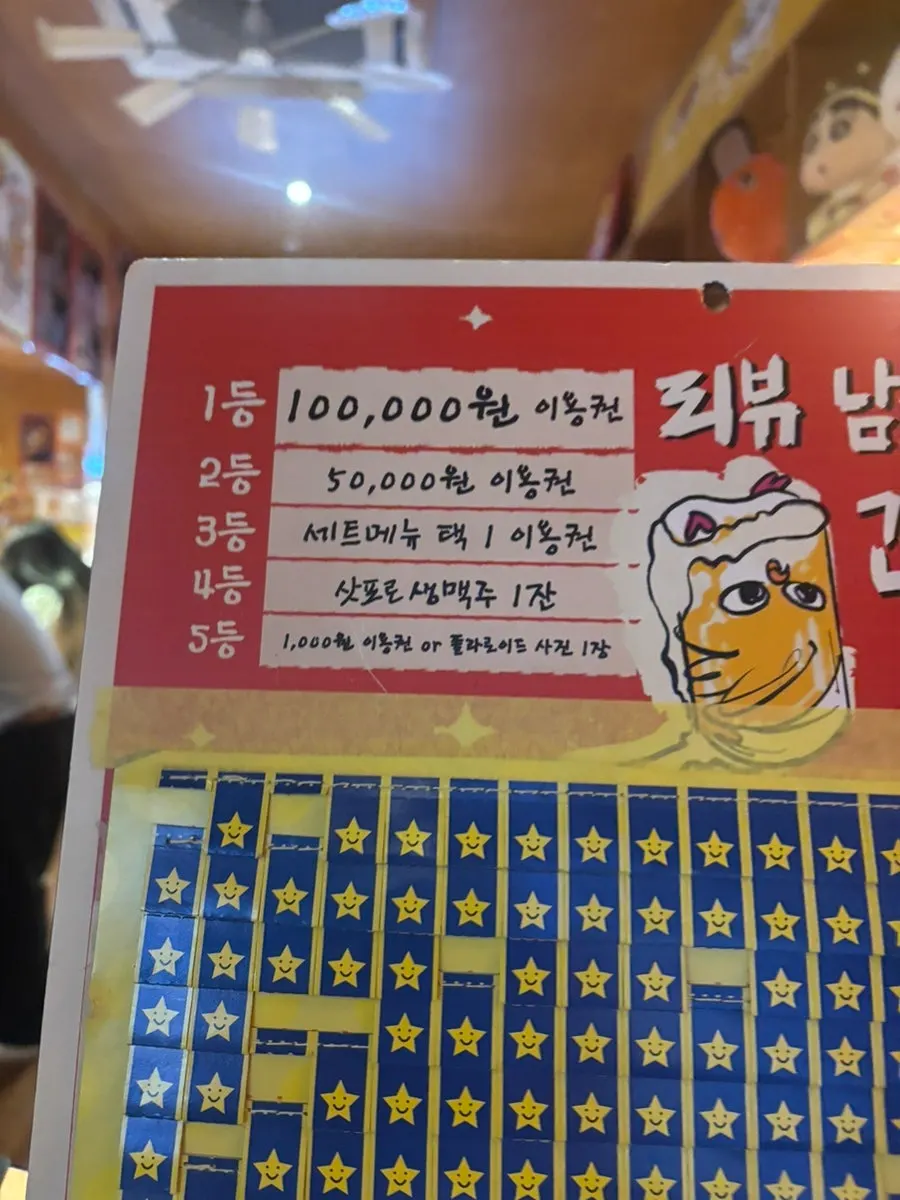 1등 100,000원 이용권
2등 50,000원 이용권
3등 세트메뉴 택 1 이용권
4등 삿포로 생맥주 1잔
5등 1,000원 이용권 or 폴라로이드 사진 1장
리뷰 남